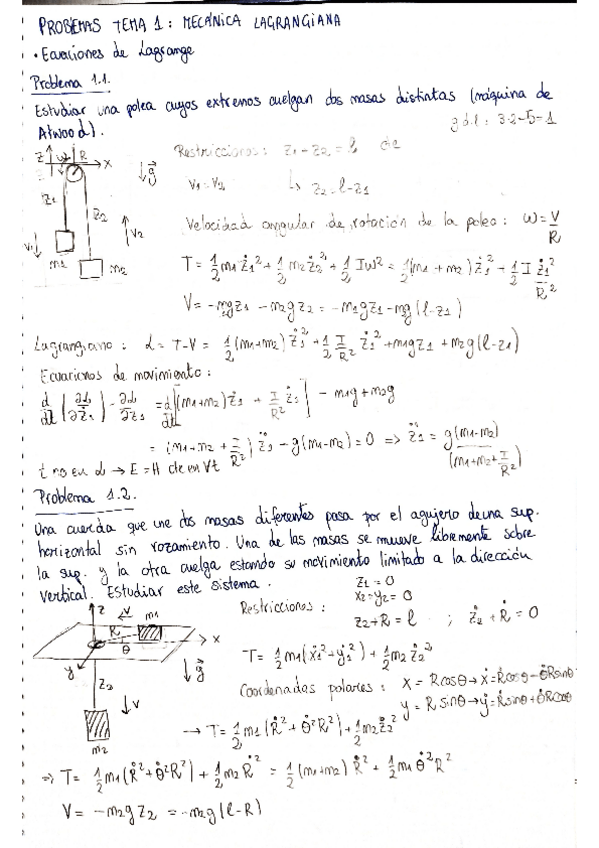 PROBLEMAS TEMA 1: MECÁNICA LAGRANGIANA
• Ecuaciones de Lagrange
Problema 1.1.
Estudiar una polea cuyos extremos cuelgan dos masas distintas (máquina de
Atwood).
g.d.l: 3·2-5=1
Restricciones: z1 - z2 = l cte
v1 = v2 ↳ z2 = l - z1
Velocidad angular de rotación de la polea: ω = V/R
T = 1/2 m1 ż1² + 1/2 m2 ż2² + 1/2 Iω² = 1/2 (m1 + m2) ż1² + 1/2 I ż1²/R²
V = -m1gz1 - m2gz2 = -m1gz1 - m2g(l-z1)
z x ω R g
z1 z2 v1 v2 m1 m2
Lagrangiano: L = T-V = 1/2 (m1+m2) ż1² + 1/2 I/R² ż1² + m1gz1 + m2g(l-z1)
Ecuaciones de movimiento:
d/dt (∂L/∂ż1) - ∂L/∂z1 = d/dt [(m1+m2)ż1 + I/R² ż1] - m1g + m2g
= (m1+m2 + I/R²) z̈1 - g(m1-m2) = 0 => z̈1 = g(m1-m2)/(m1+m2+I/R²)
t no en L → E = H cte en ∀t
Problema 1.2.
Una cuerda que une dos masas diferentes pasa por el agujero de una sup.
horizontal sin rozamiento. Una de las masas se mueve libremente sobre
la sup. y la otra cuelga estando su movimiento limitado a la dirección
vertical. Estudiar este sistema.
z1 = 0
x2 = y2 = 0
Restricciones: z2 + R = l ; ż2 + Ṙ = 0
T = 1/2 m1 (ẋ1² + ẏ1²) + 1/2 m2 ż2²
Coordenadas polares: x = R cosθ → ẋ = Ṙcosθ - θ̇Rsinθ
y = R sinθ → ẏ = Ṙsinθ + θ̇Rcosθ
z v m1 R θ x y g
z2 v m2
→ T = 1/2 m1 (Ṙ² + θ̇²R²) + 1/2 m2 ż2²
=> T = 1/2 m1 (Ṙ² + θ̇²R²) + 1/2 m2 Ṙ² = 1/2 (m1+m2) Ṙ² + 1/2 m1 θ̇²R²
V = -m2gz2 = -m2g(l-R)